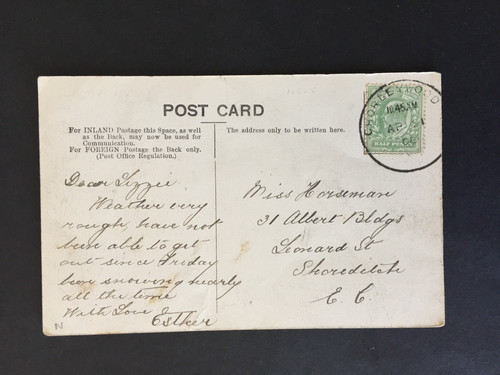 POST CARD
For INLAND Postage this Space, as well
as the Back, may now be used for
Communication.
For FOREIGN Postage the Back only.
(Post Office Regulation.)
The address only to be written here.
CHORLEYWOOD
10.45 AM
AP 1
HALF PENNY
Dear Lizzie
Weather very
rough, have not
been able to get
out since Friday
been snowing nearly
all the time
With Love
Esther
Miss Horseman
31 Albert Bldgs
Leonard St
Shoreditch
E. C
N